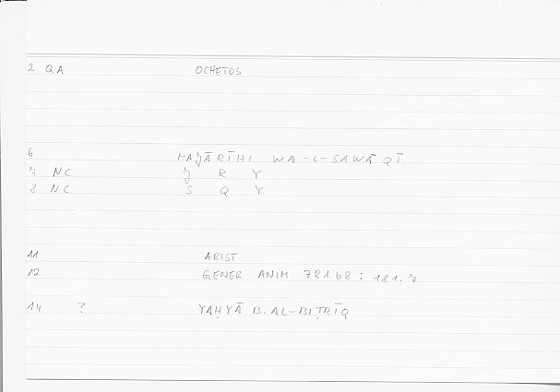 2 QA OCHETOS
6 MAǦĀRĪHI WA-L-SAWĀQĪ
7 NC Ǧ R Y
8 NC S Q Y
11 ARIST
12 GENER ANIM 781b8 ; 181.7
14 ? YAḤYĀ B. AL-BIṬRĪQ